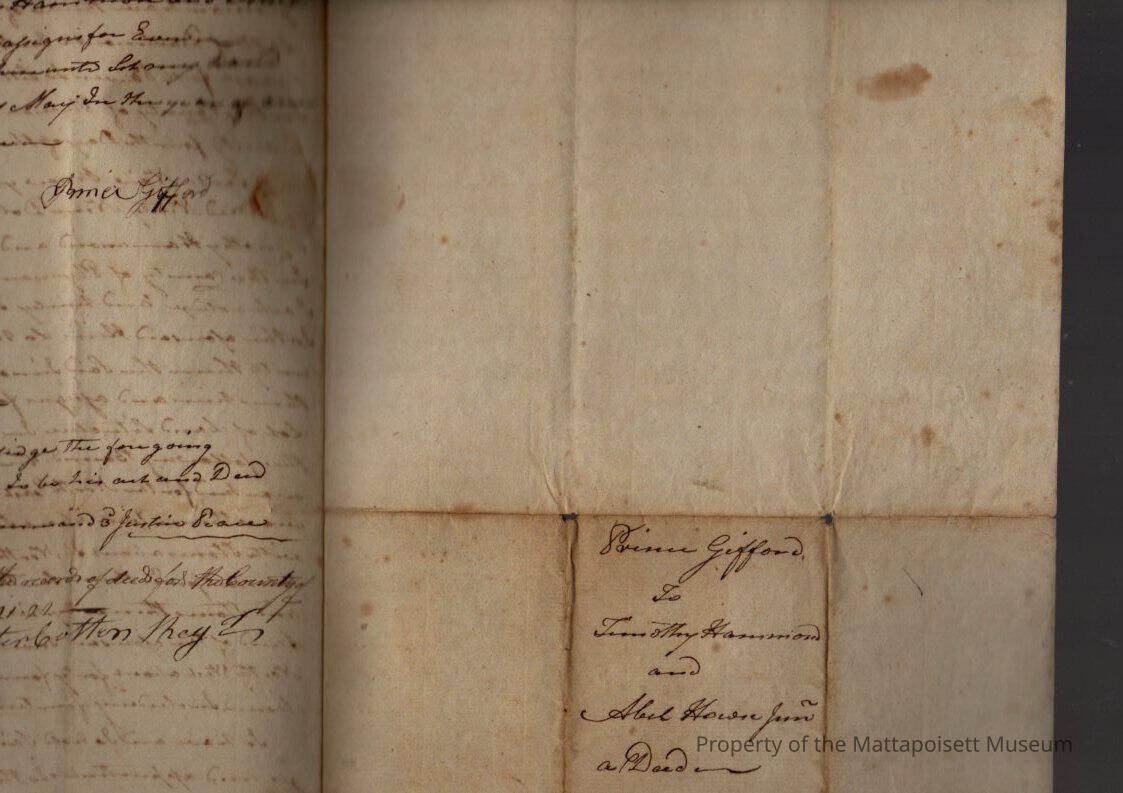 Hammond and
assigns for Ever
hereunto Set my hand
May In the year of
Prince Gifford
the foregoing
to be his act and Deed
Justice Peace
the records of deeds for the County of
21.22
Cotton Regr
Prince Gifford
To
Timothy Hammond
and
Abel House Junr
a Deed
Property of the Mattapoisett Museum